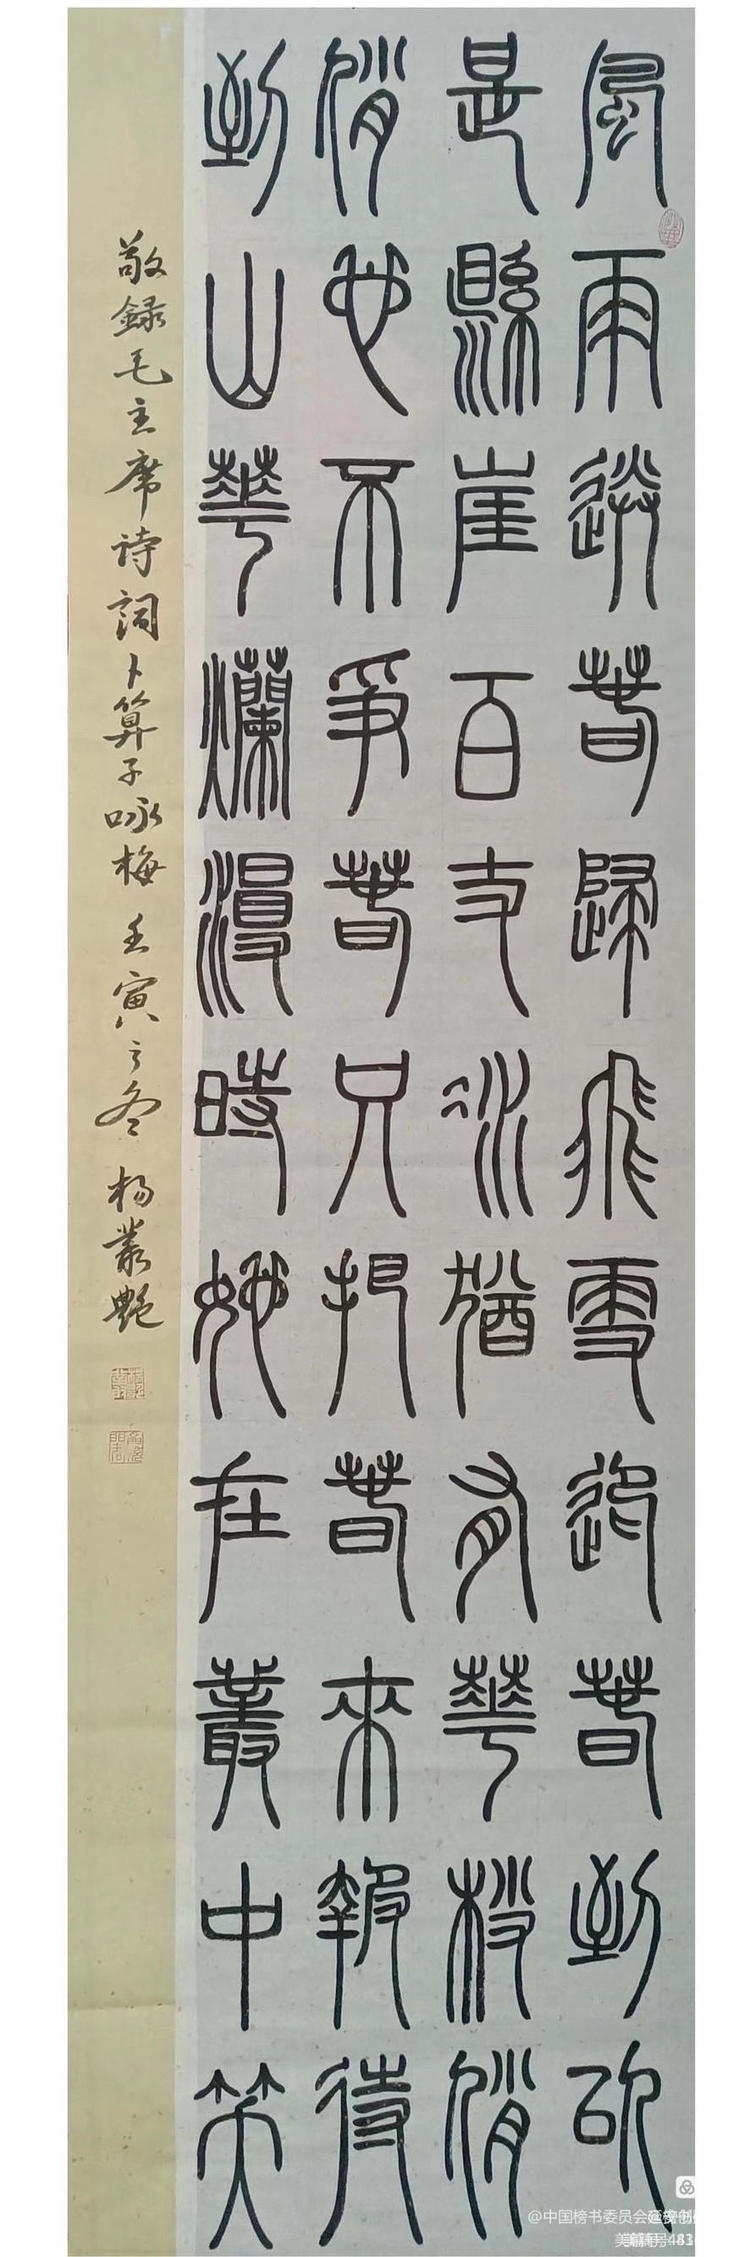 風雨送春歸飛雪迎春到已
是懸崖百丈冰猶有華枝俏
俏也不爭春只把春來報待
到山華爛漫時她在叢中笑
敬録毛主席诗詞卜算子咏梅 壬寅之冬 杨叢艳
@中国榜书委员会